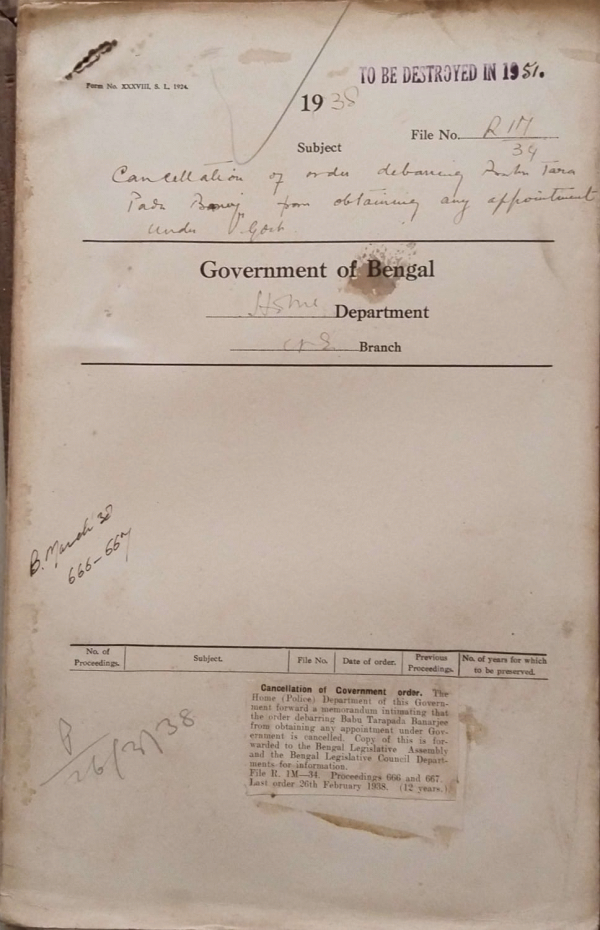 TO BE DESTROYED IN 1951.
Form No. XXXVIII, S. L. 1924.
1938
File No. R 1M
34
Subject
Cancellation of order debarring Babu Tara
Pada Banerj from obtaining any appointment
under Govt.
Government of Bengal
Home Department
Branch
B. March 38
666-667
No. of Proceedings. Subject. File No. Date of order. Previous Proceedings. No. of years for which to be preserved.
Cancellation of Government order. The
Home (Police) Department of this Govern-
ment forward a memorandum intimating that
the order debarring Babu Tarapada Banarjee
from obtaining any appointment under Gov-
ernment is cancelled. Copy of this is for-
warded to the Bengal Legislative Assembly
and the Bengal Legislative Council Depart-
ments for information.
File R. 1M—34. Proceedings 666 and 667.
Last order 26th February 1938. (12 years.)
26/3/38